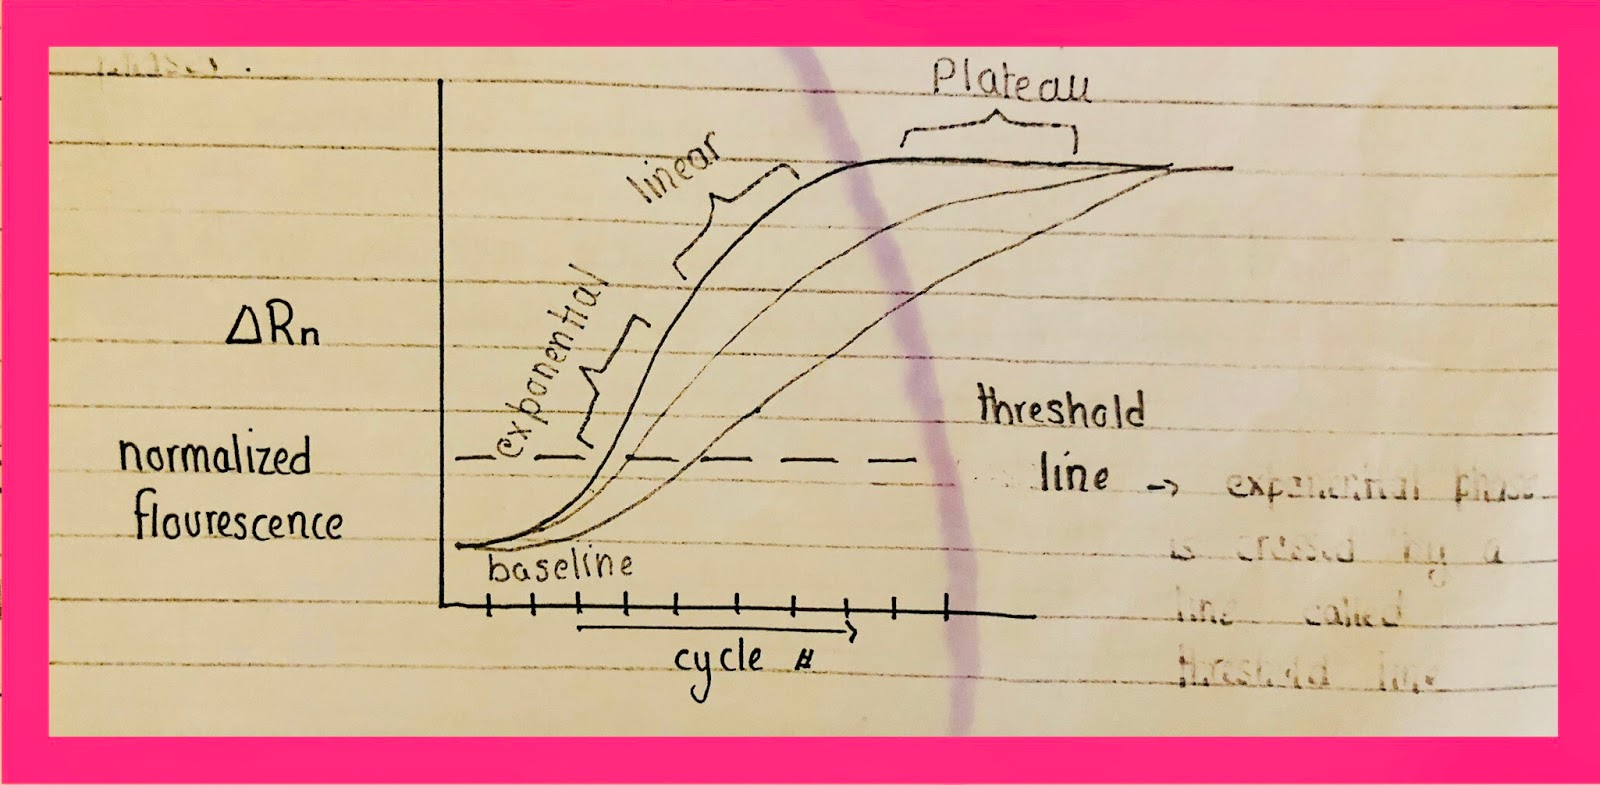 Plateau
linear
exponential
ΔRn
normalized
flourescence
threshold
line → exponential phase
is crossed by a
line called
threshold line
baseline
cycle #